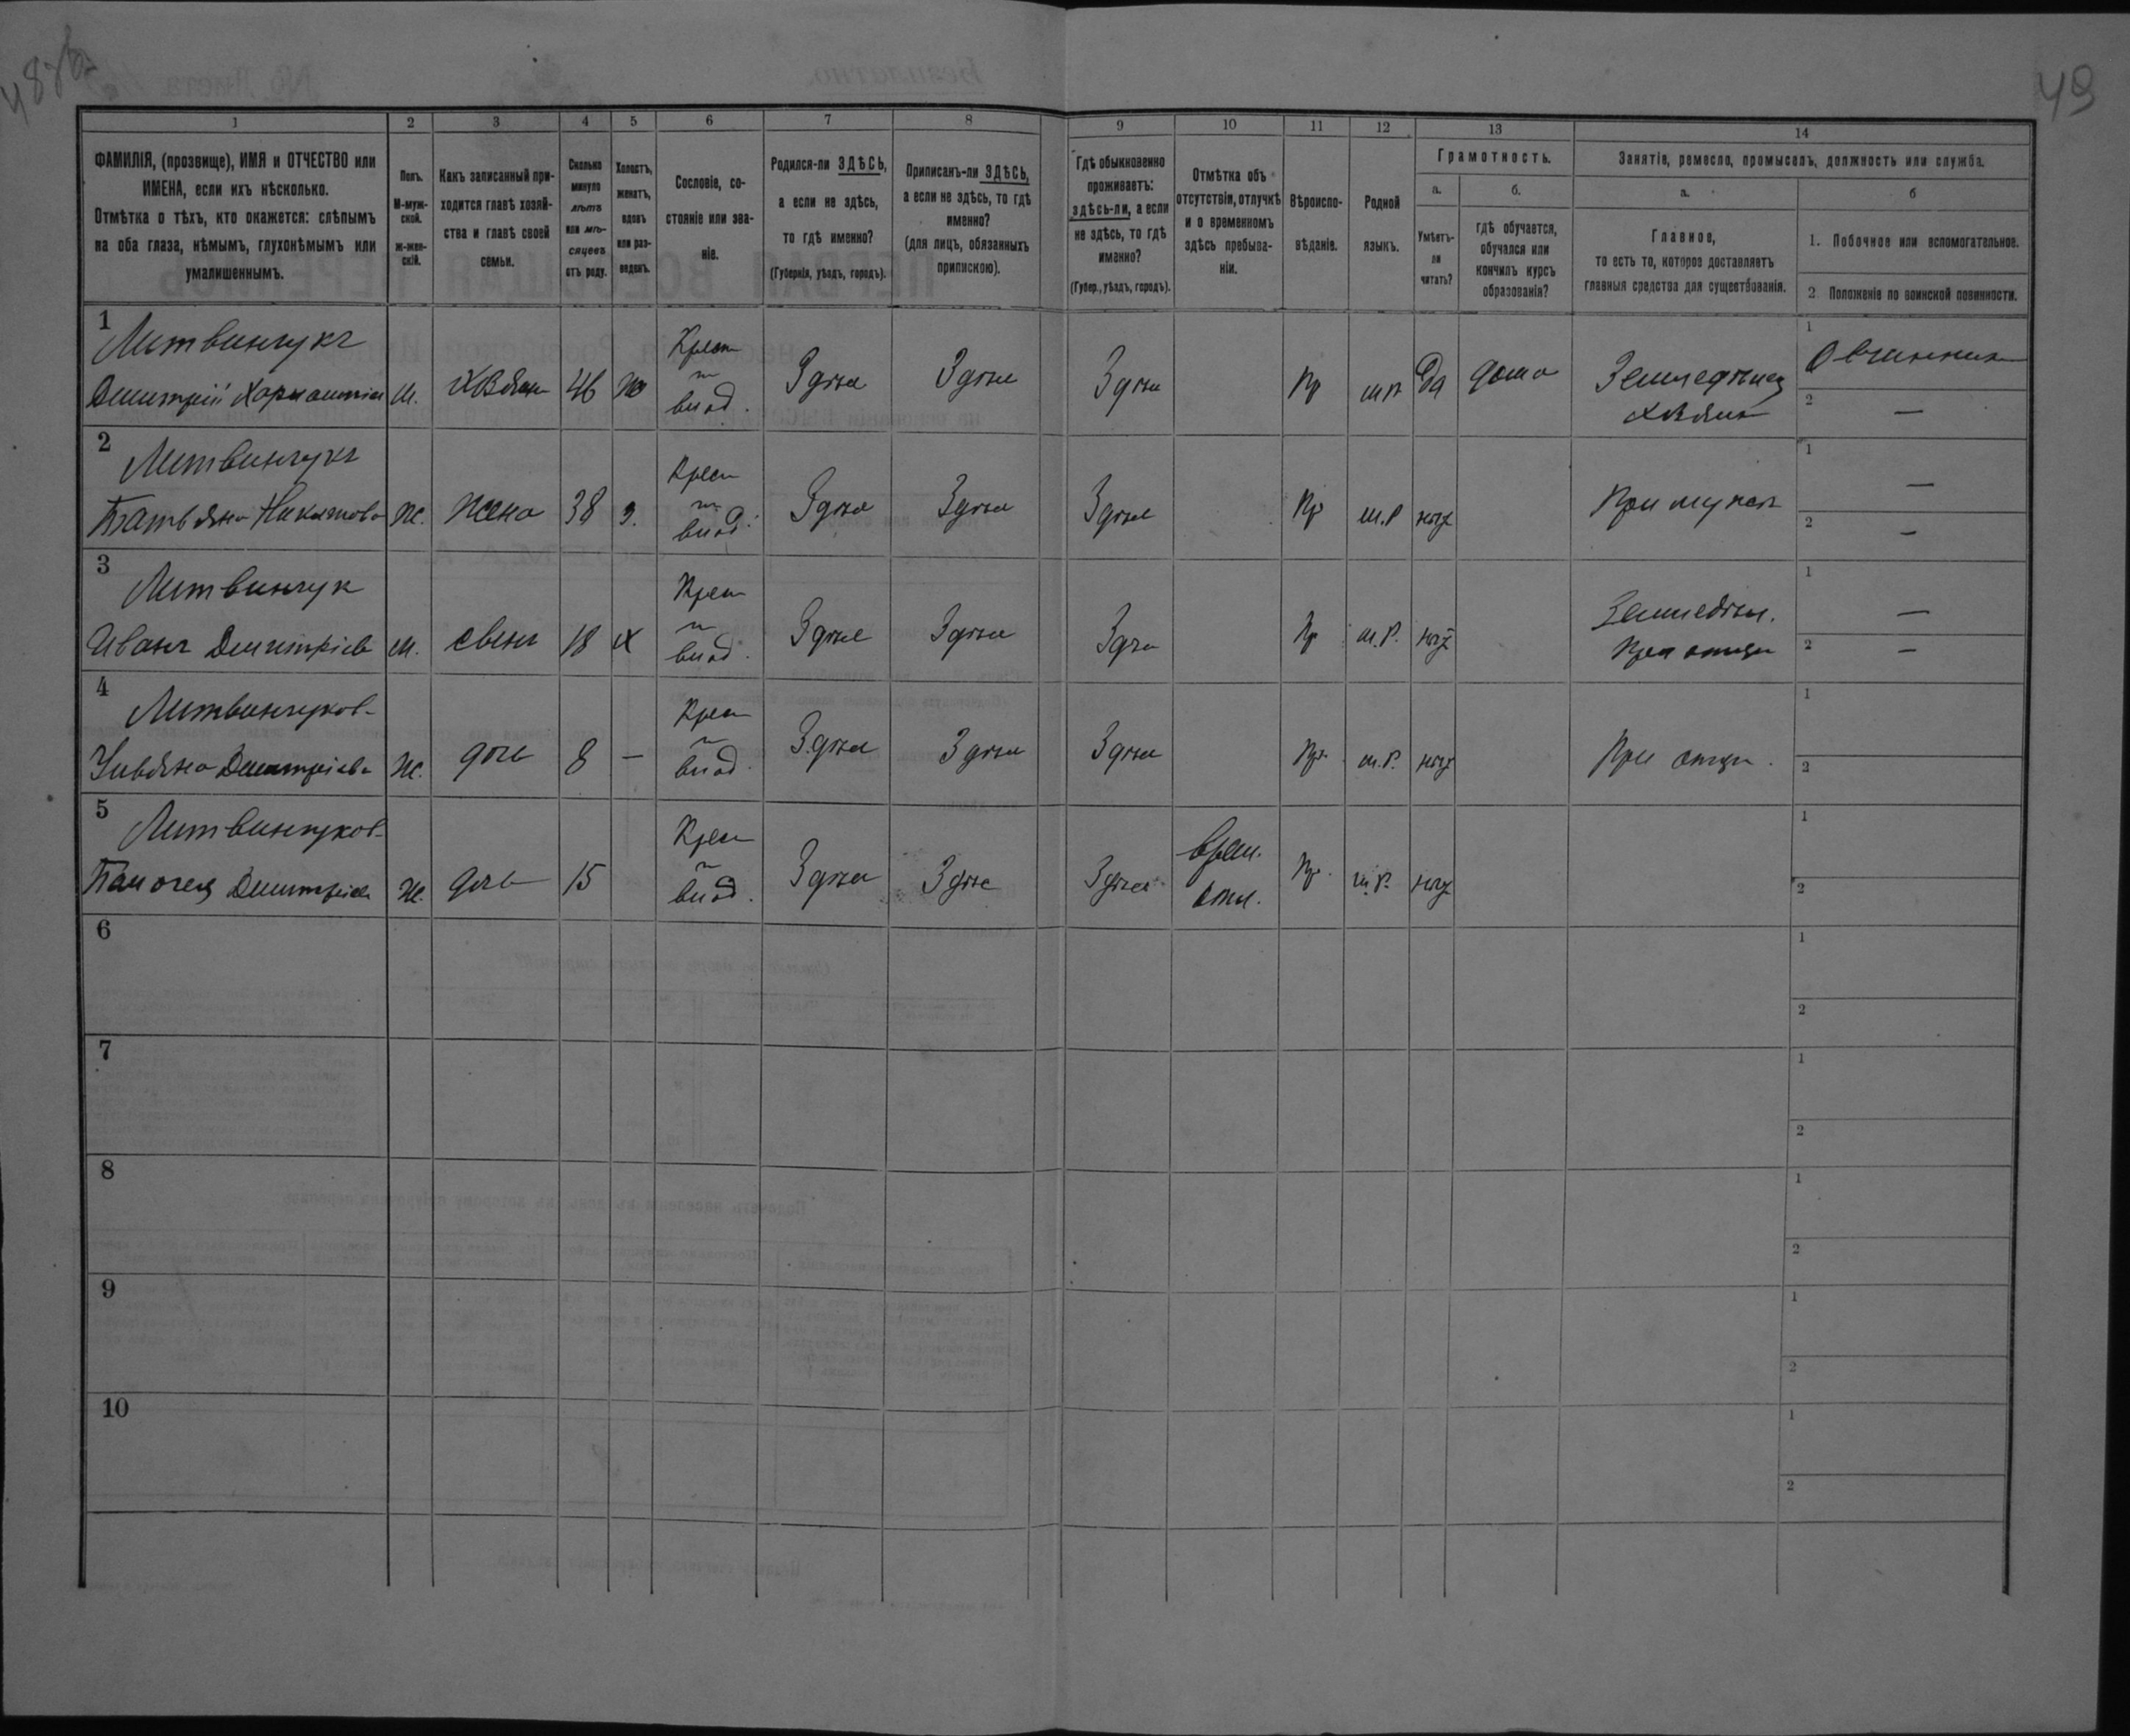 48об
49
1
2
3
4
5
6
7
8
9
10
11
12
13
14
ФАМИЛІЯ, (прозвище), ИМЯ и ОТЧЕСТВО или
ИМЕНА, если ихъ нѣсколько.
Отмѣтка о тѣхъ, кто окажется: слѣпымъ
на оба глаза, нѣмымъ, глухонѣмымъ или
умалишеннымъ.
Полъ.
М-муж-
ской.
ж-жен-
скій.
Какъ записанный при-
ходится главѣ хозяй-
ства и главѣ своей
семьи.
Сколько
минуло
лѣтъ
или мѣ-
сяцевъ
отъ роду.
Холостъ,
женатъ,
вдовъ
или раз-
веденъ.
Сословіе, со-
стояніе или зва-
ніе.
Родился-ли ЗДѢСЬ,
а если не здѣсь,
то гдѣ именно?
(Губернія, уѣздъ, городъ).
Приписанъ-ли ЗДѢСЬ,
а если не здѣсь, то гдѣ
именно?
(для лицъ, обязанныхъ
припискою).
Гдѣ обыкновенно
проживаетъ:
здѣсь-ли, а если
не здѣсь, то гдѣ
именно?
(Губер., уѣздъ, городъ).
Отмѣтка объ
отсутствіи, отлучкѣ
и о временномъ
здѣсь пребыва-
ніи.
Вѣроиспо-
вѣданіе.
Родной
языкъ.
Грамотность.
а.
б.
Умѣетъ-
ли
читать?
гдѣ обучается,
обучался или
кончилъ курсъ
образованія?
Занятіе, ремесло, промыселъ, должность или служба.
а.
б
Главное,
то есть то, которое доставляетъ
главныя средства для существованія.
1. Побочное или вспомогательное.
2. Положеніе по воинской повинности.
1
Литвинчукъ
Дмитрій м. 46 Крест Здѣсь Здѣсь Здѣсь Пр м.р Да дома Земледѣлец
1
2 —
2
Литвинчукъ
Татьяна ж. жена 38 з. Крест Здѣсь Здѣсь Здѣсь Пр м.р нѣт При мужѣ
1 —
2 —
3
Литвинчук
Иванъ Дмитріев м. сынъ 18 х Крест Здѣсь Здѣсь Здѣсь Пр м.р. нѣт Земледѣл.
При отцѣ
1 —
2 —
4
Литвинчуков-
Дмитріева ж. дочь 8 — Крест Здѣсь Здѣсь Здѣсь Пр. м.р. нѣт При отцѣ.
1
2
5
Литвинчуков-
Дмитріев ж. дочь 15 Крест Здѣсь Здѣсь Здѣсь врем. отл. Пр. м.р. нѣт
1
2
6
1
2
7
1
2
8
1
2
9
1
2
10
1
2